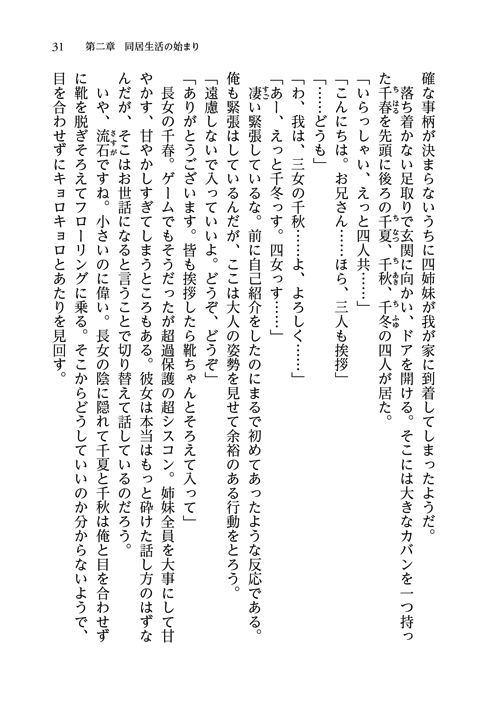 31　第二章　同居生活の始まり
確な事柄が決まらないうちに四姉妹が我が家に到着してしまったようだ。
落ち着かない足取りで玄関に向かい、ドアを開ける。そこには大きなカバンを一つ持っ
た千春を先頭に後ろの千夏、千秋、千冬の四人が居た。
「いらっしゃい、えっと四人共……」
「こんにちは。お兄さん……ほら、三人も挨拶」
「……どうも」
「わ、我は、三女の千秋……よ、よろしく……」
「あー、えっと千冬っす。四女っす……」
凄い緊張しているな。前に自己紹介をしたのにまるで初めてあったような反応である。
俺も緊張はしているんだが、ここは大人の姿勢を見せて余裕のある行動をとろう。
「遠慮しないで入っていいよ。どうぞ、どうぞ」
「ありがとうございます。皆も挨拶したら靴ちゃんとそろえて入って」
長女の千春。ゲームでもそうだったが超過保護の超シスコン。姉妹全員を大事にして甘
やかす、甘やかしすぎてしまうところもある。彼女は本当はもっと砕けた話し方のはずな
んだが、そこはお世話になると言うことで切り替えて話しているのだろう。
いや、流石ですね。小さいのに偉い。長女の陰に隠れて千夏と千秋は俺と目を合わせず
に靴を脱ぎそろえてフローリングに乗る。そこからどうしていいのか分からないようで、
目を合わせずにキョロキョロとあたりを見回す。